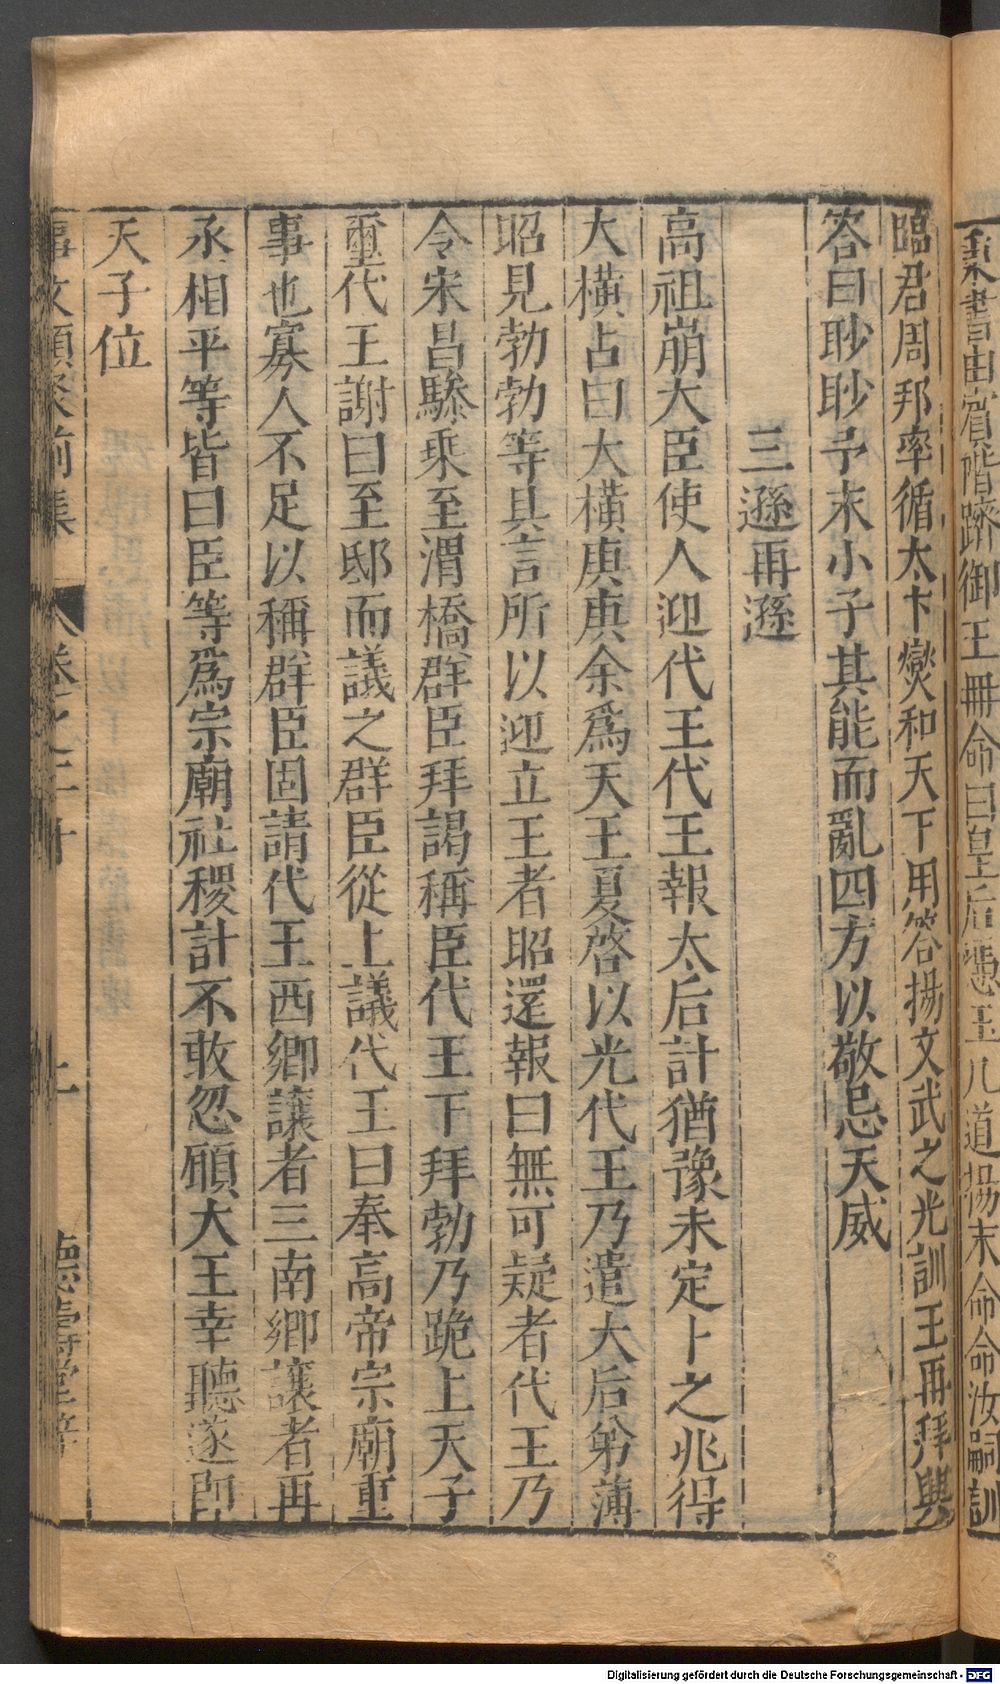 秉書由賓階隮御王冊命曰皇后憑玉几道揚末命命汝嗣訓
臨君周邦率循太卞爕和天下用答揚文武之光訓王再拜興
答曰眇眇予末小子其能而亂四方以敬忌天威
三遜再遜
高祖崩大臣使人迎代王代王報太后計猶豫未定卜之兆得
大橫占曰大橫庚庚余爲天王夏啓以光代王乃遣大后弟薄
昭見勃勃等具言所以迎立王者昭還報曰無可疑者代王乃
令宋昌驂乘至渭橋群臣拜謁稱臣代王下拜勃乃跪上天子
璽代王謝曰至邸而議之群臣從上議代王曰奉高帝宗廟重
事也寡人不足以稱群臣固請代王西鄉讓者三南鄉讓者再
丞相平等皆曰臣等爲宗廟社稷計不敢忽願大王幸聽遂即
天子位
事文類聚前集 卷之二十 上 德壽堂梓
Digitalisierung gefördert durch die Deutsche Forschungsgemeinschaft - DFG